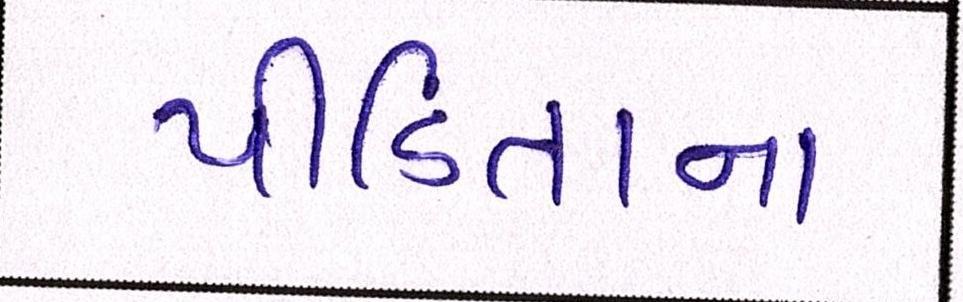 પીડિતાના